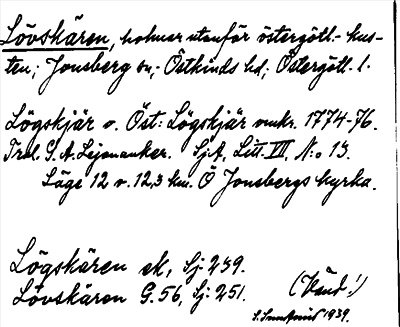 Lövskären, holmar utanför östergötl.- kus-
ten; Jonsberg sn; Östkinds hd; Östergötl. l.
Lögskjär o. Öst: Lögskjär omkr. 1774-76.
Trol. C. A. Lejonanker. SjA, Litt. VII, N:o 13.
Läge 12 o. 12,3 km. Ö Jonsbergs kyrka.
Lögskären ek, Sj: 239.
Lövskären G. 56, Sj: 251. (Vänd!)
1939.